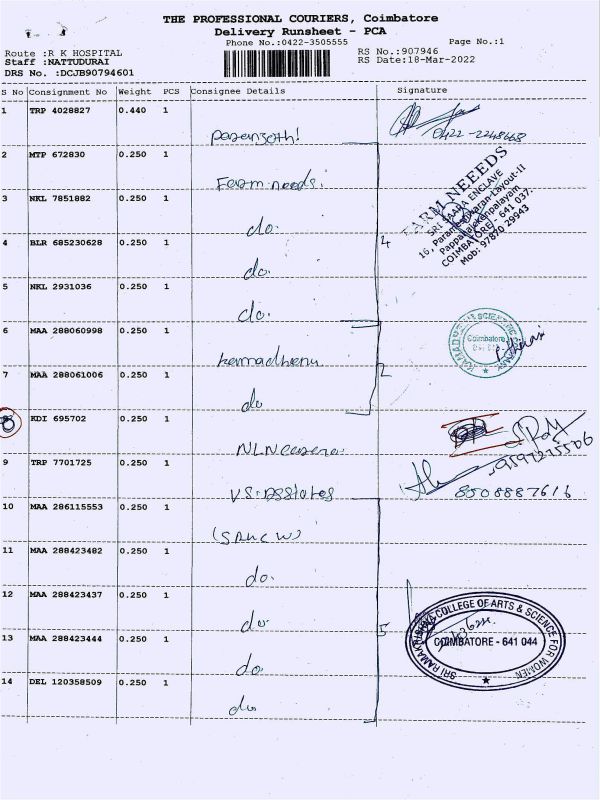 THE PROFESSIONAL COURIERS, Coimbatore
Delivery Runsheet - PCA
Phone No.:0422-3505555
Page No.:1
Route :R K HOSPITAL
Staff :NATTUDURAI
DRS No. :DCJB90794601
RS No.:907946
RS Date:18-Mar-2022
S No Consignment No Weight PCS Consignee Details Signature
1 TRP 4028827 0.440 1
0422-2248668
2 MTP 672830 0.250 1 Farm needs.
3 NKL 7851882 0.250 1 do.
4 BLR 685230628 0.250 1 do.
4
5 NKL 2931036 0.250 1 do.
FARM NEEEDS
SRI SAARA ENCLAVE
COIMBATORE - 641 037.
Mob: 97870 29943
6 MAA 288060998 0.250 1 kamadhenu
Coimbatore
7 MAA 288061006 0.250 1 do
2
8 KDI 695702 0.250 1
9 TRP 7701725 0.250 1
8508887616
10 MAA 286115553 0.250 1
11 MAA 288423482 0.250 1 do.
12 MAA 288423437 0.250 1 do.
5
13 MAA 288423444 0.250 1 do
14 DEL 120358509 0.250 1 do.
SRI RAMAKRISHNA COLLEGE OF ARTS & SCIENCE FOR WOMEN
COIMBATORE - 641 044